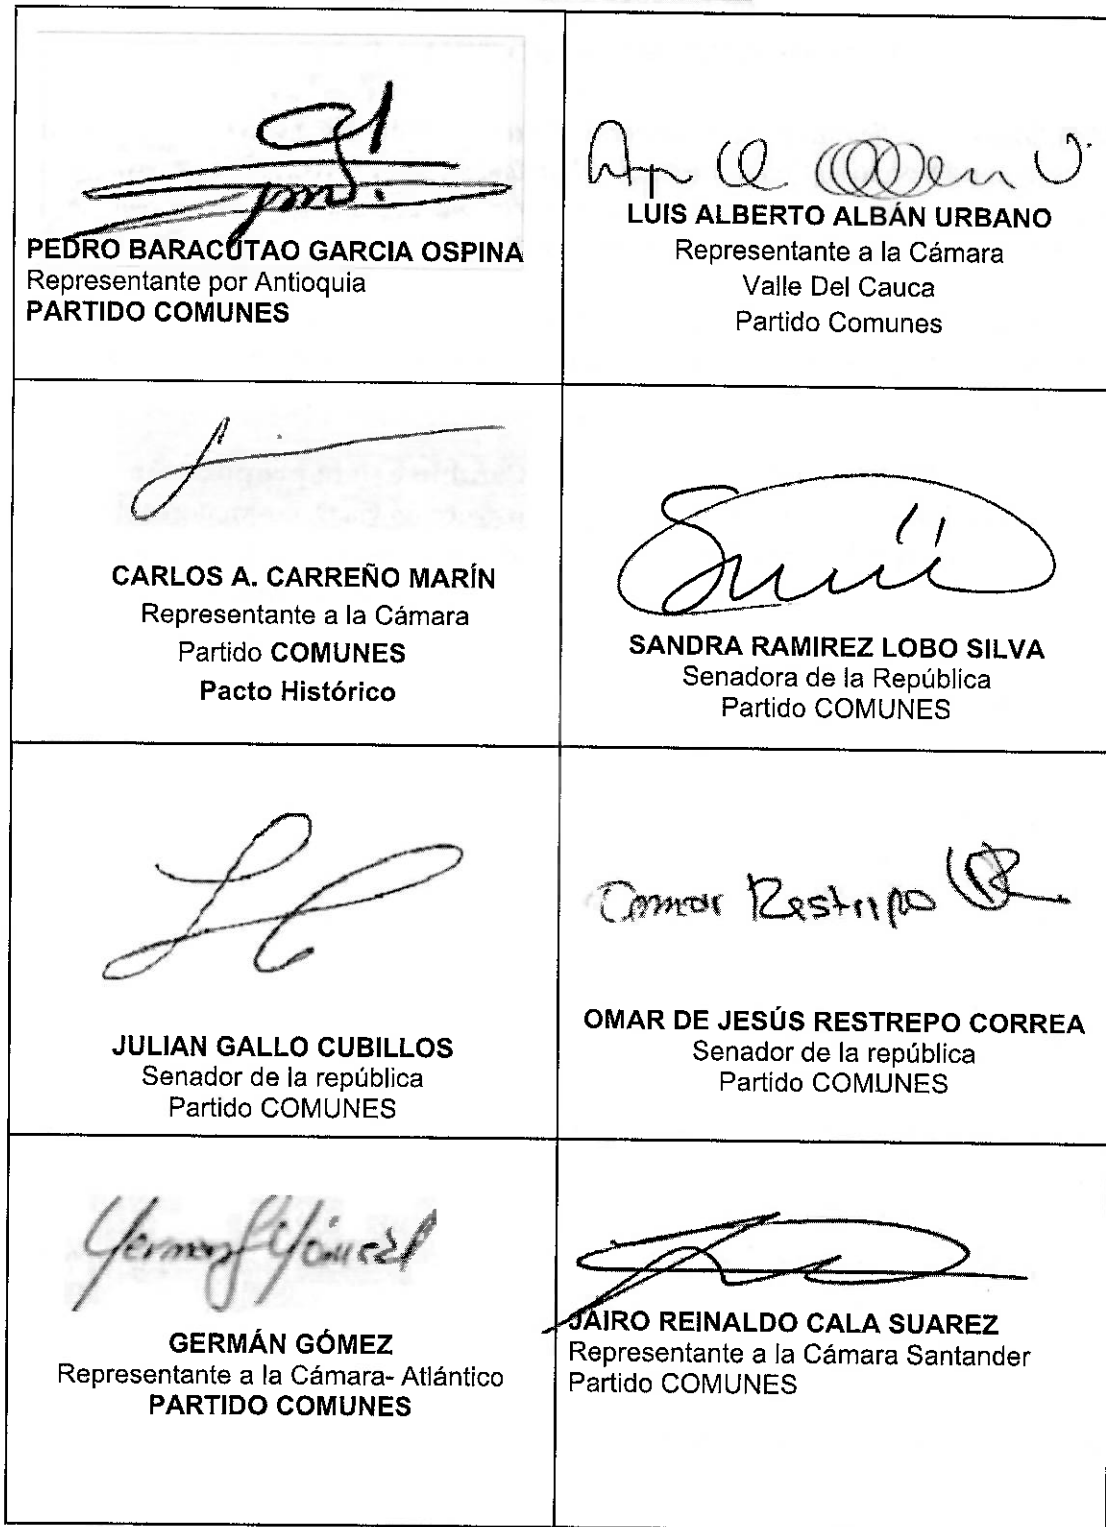 PEDRO BARACUTAO GARCIA OSPINA
Representante por Antioquia
PARTIDO COMUNES
LUIS ALBERTO ALBÁN URBANO
Representante a la Cámara
Valle Del Cauca
Partido Comunes
CARLOS A. CARREÑO MARÍN
Representante a la Cámara
Partido COMUNES
Pacto Histórico
SANDRA RAMIREZ LOBO SILVA
Senadora de la República
Partido COMUNES
JULIAN GALLO CUBILLOS
Senador de la república
Partido COMUNES
Omar Restrepo
OMAR DE JESÚS RESTREPO CORREA
Senador de la república
Partido COMUNES
German Gómez
GERMÁN GÓMEZ
Representante a la Cámara- Atlántico
PARTIDO COMUNES
JAIRO REINALDO CALA SUAREZ
Representante a la Cámara Santander
Partido COMUNES